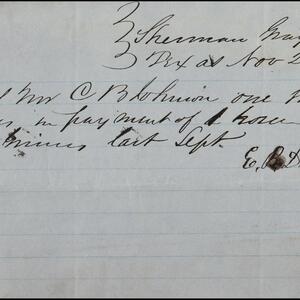 Sherman Gray
Texas Nov 2
Mr C B Johnson one
in payment of 1 horse
last Sept.
E. B. D